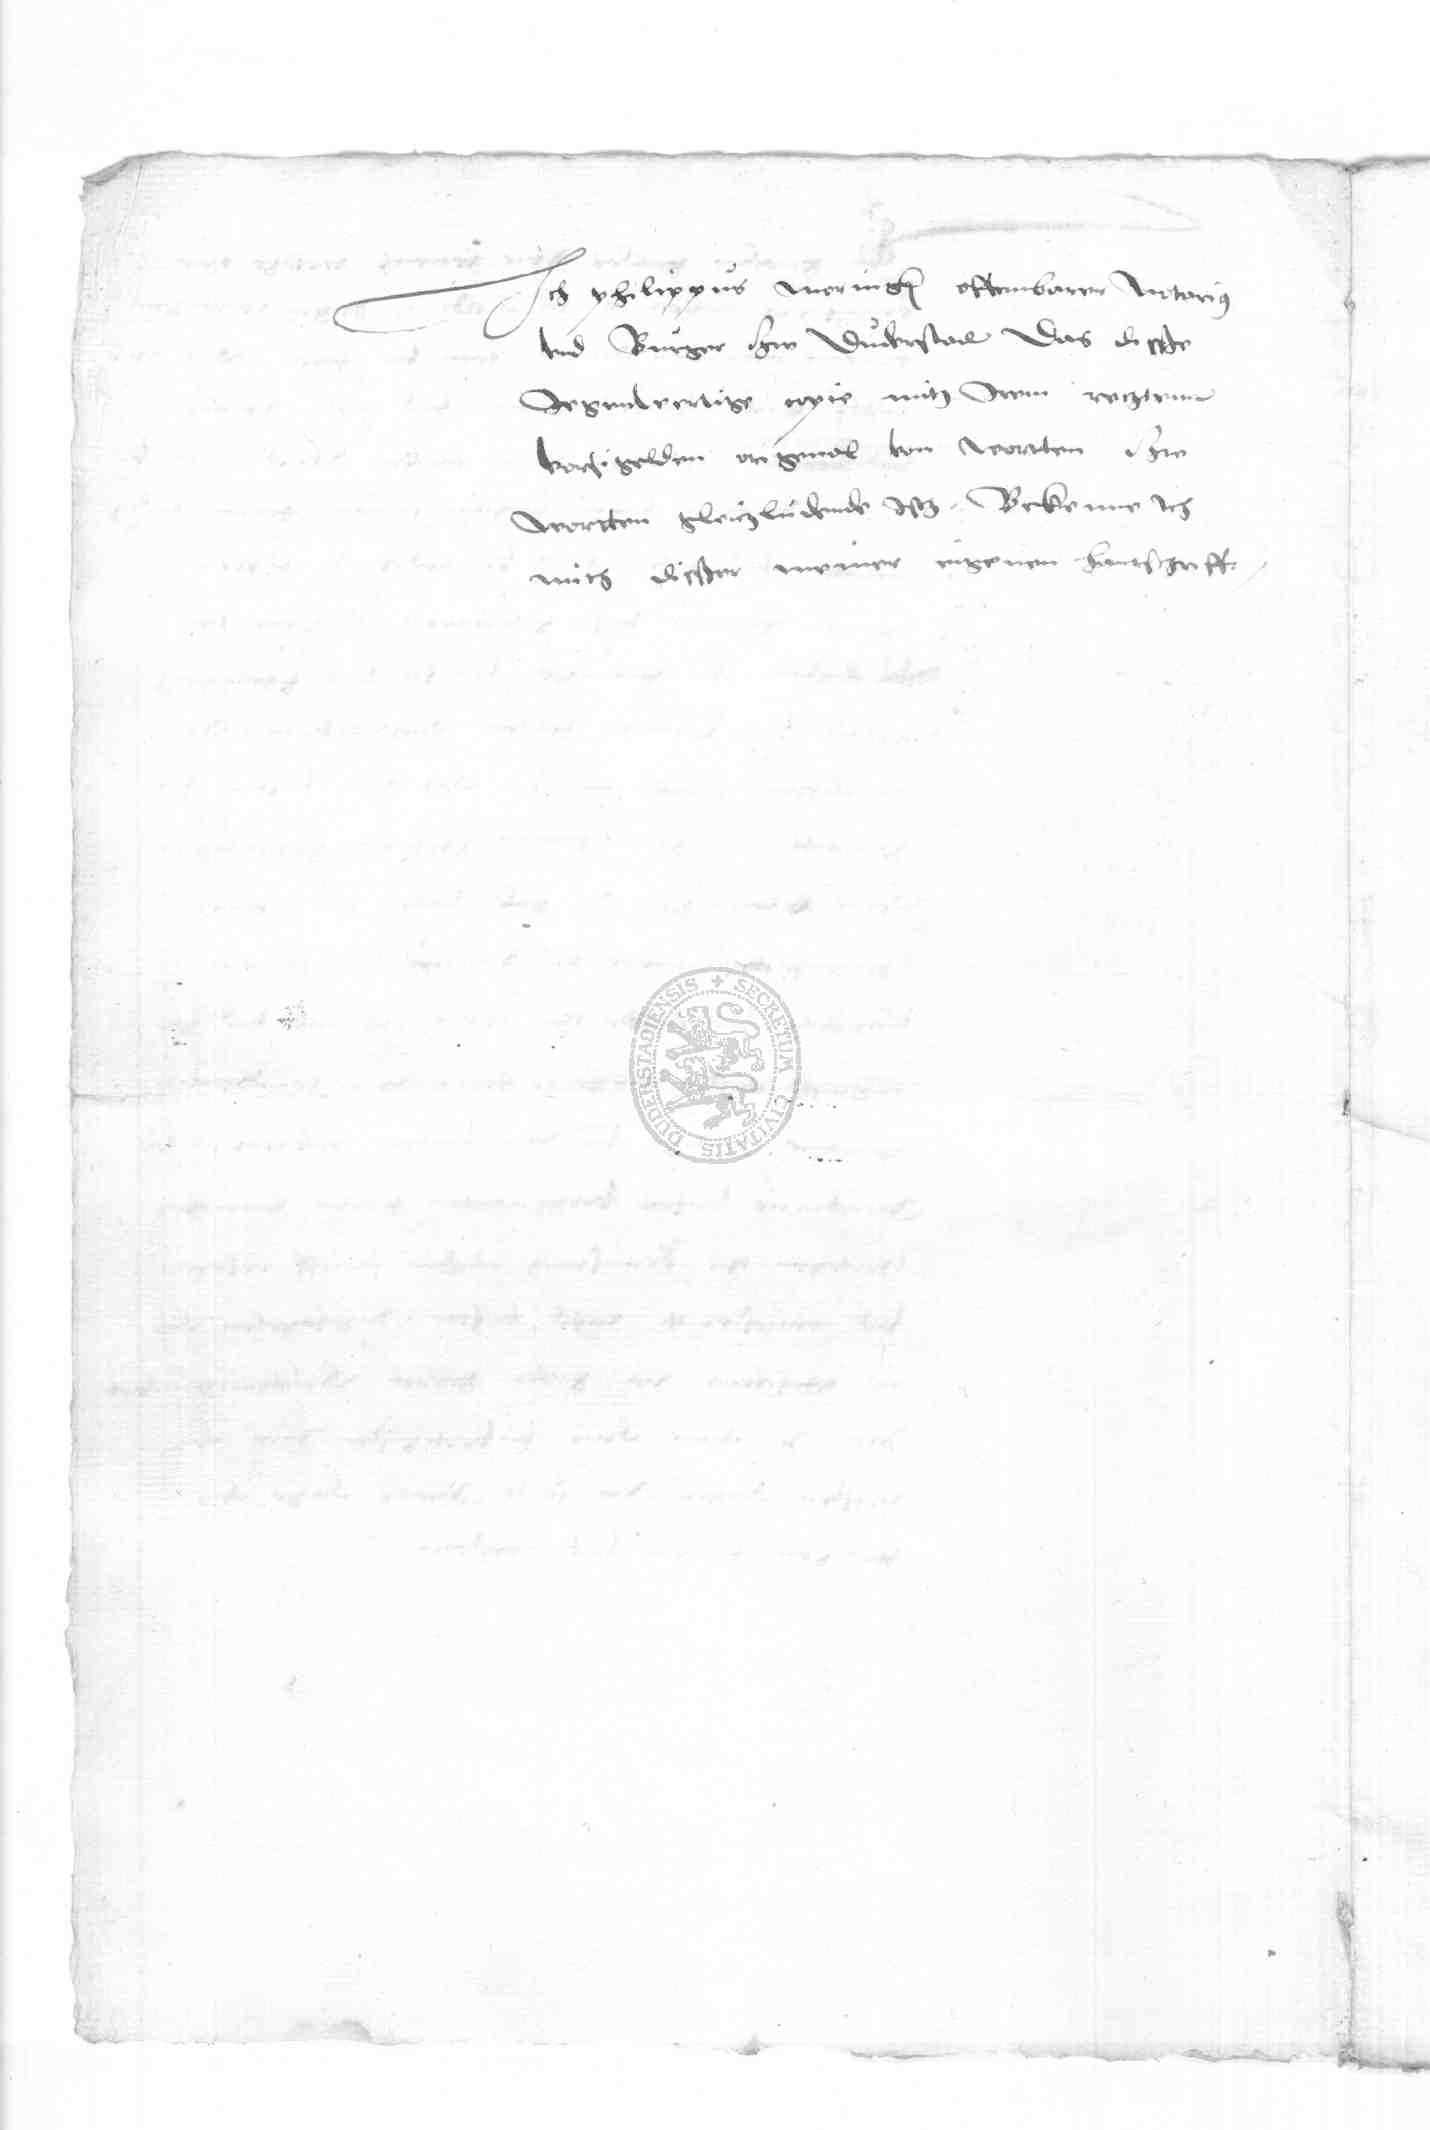 Ich philippus meringk offembarer Notarius
vnd Burger zw Duderstad Das diesse
Jegenwertige copie mitz dem rechtenn
vorsigelden original von wortten zw
wortten gleichludende istz. Bekenne ich
mitz diesser meiner eigenen hantschrifft
SECRETUM CIVITATIS DUDERSTADIENSIS